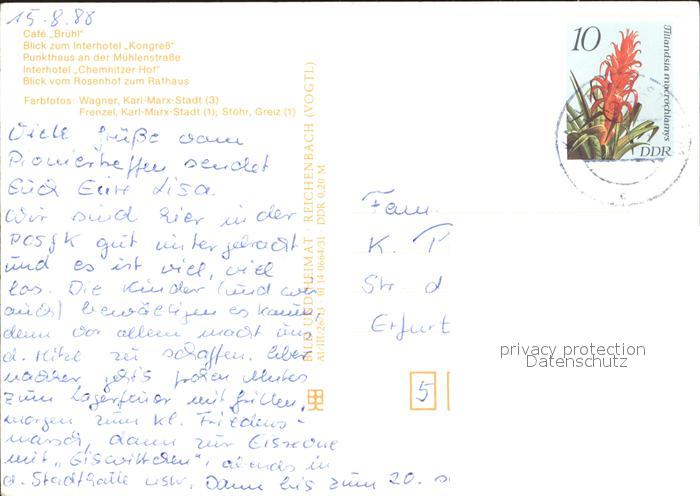 15.8.88
Café „Brühl“
Blick zum Interhotel „Kongreß“
Punkthaus an der Mühlenstraße
Interhotel „Chemnitzer Hof“
Blick vom Rosenhof zum Rathaus
Farbfotos: Wagner, Karl-Marx-Stadt (3)
Frenzel, Karl-Marx-Stadt (1); Stöhr, Greiz (1)
Viele Grüße vom
Pioniertreffen sendet
Euch Eure Lisa.
Wir sind hier in der
POS gut untergebracht
und es ist viel, viel
los. Die Kinder (und wir
auch) bewältigen es kaum,
denn vor allem macht uns
d. Hitze zu schaffen. Aber
nachher geht's frohen Mutes
zum Lagerfeuer mit Grillen,
morgen zum kl. Friedens-
marsch, dann zur Eisrevue
mit „Eiswittchen“, abends in
d. Stadthalle usw. Dann bis zum 20. s
BILD UND HEIMAT REICHENBACH (VOGTL)
A1/III/26/13 01 14 0664/31 DDR 0,20 M
10
Tillandsia macrochlamys
DDR
Fam.
K.
Str d
Erfurt
5
privacy protection
Datenschutz